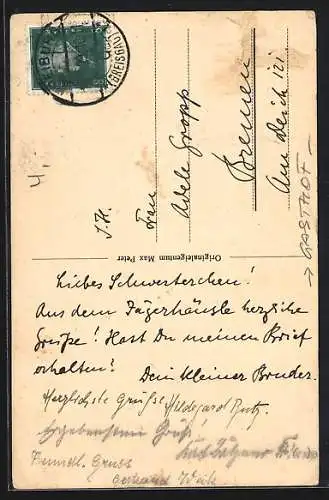 FREIBURG
(BREISGAU)
4.
I. H.
Frau
Adele Gropp
Bremen
Am Deich 121
→ GASTHOF –
Originaleigentum Max Peter
Liebes Schwesterchen!
Aus dem Jägerhäusle herzliche
Grüße! Hast Du meinen Brief
erhalten! Dein kleiner Bruder.
Herzlichste Grüße Hildegard
Ergebensten Gruß!
Freundl. Gruss
Gerhard